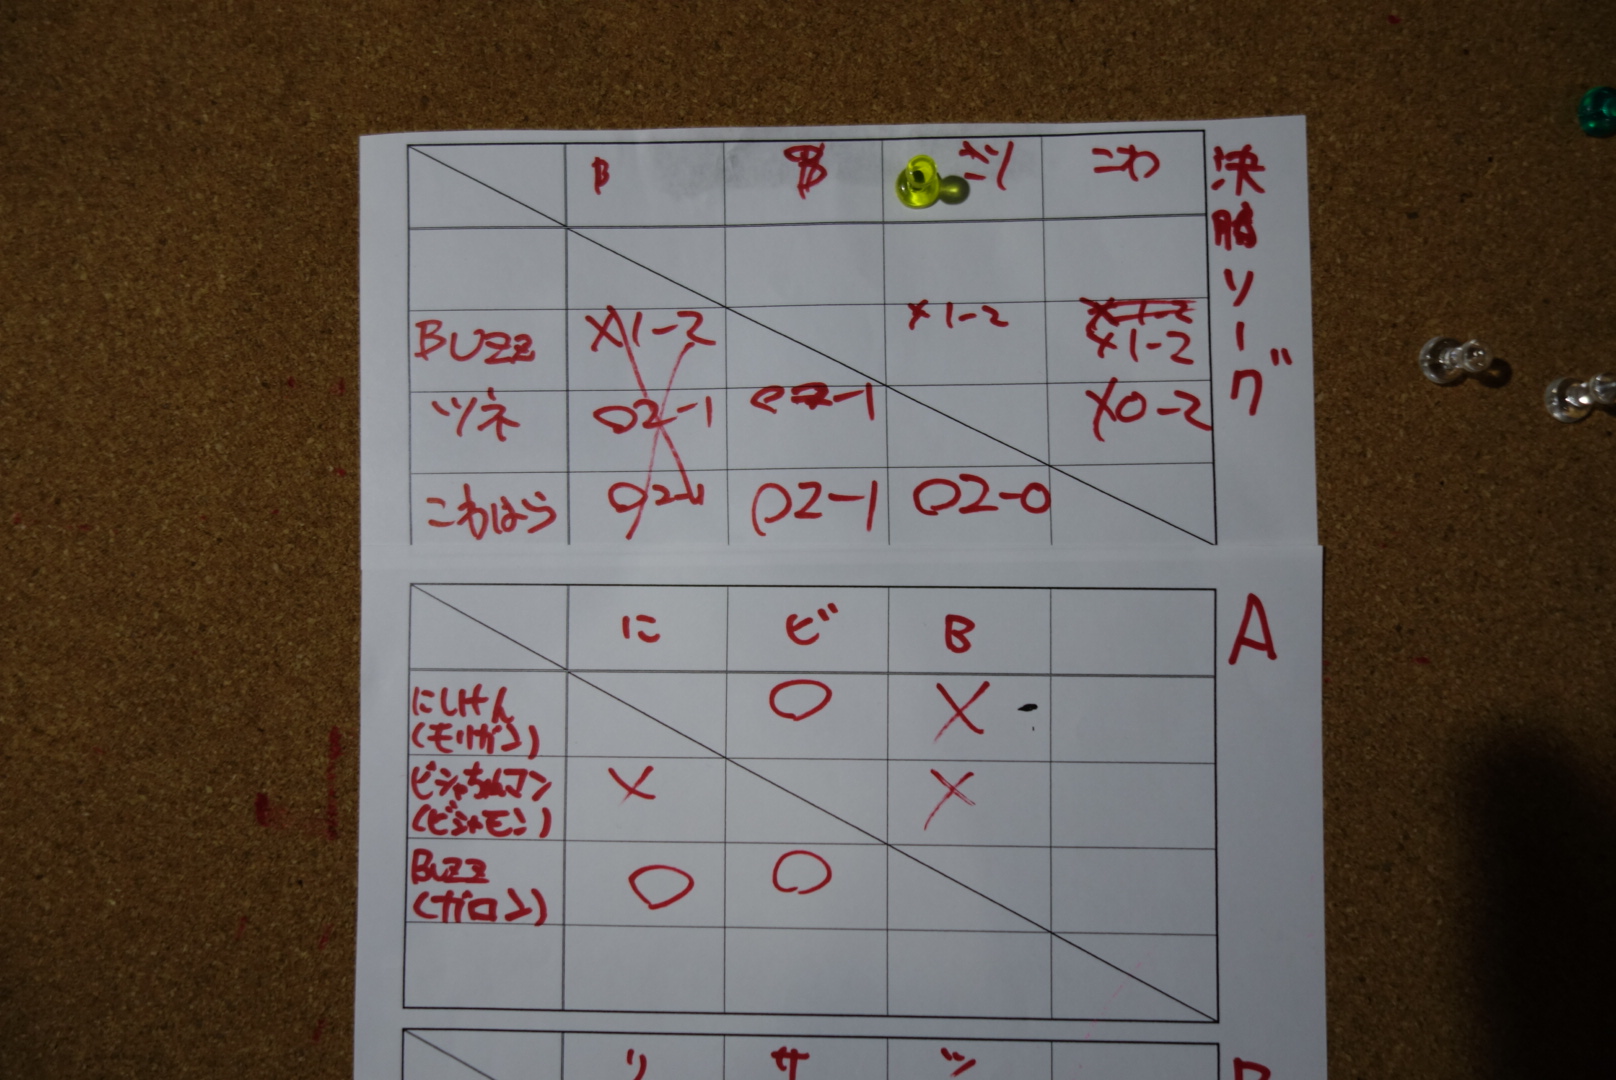 決勝リーグ
B B ツ こわ
BUZZ ×1-2 ×1-2 ×1-2
ツネ 02-1 02-1 ×0-2
こわはら 02-1 02-1 02-0
A
に ビ B
にしけん ○ ×
(モリガン)
ビシャちゃんマン × ×
(ビシャモン)
BUZZ ○ ○
(ガロン)
リ サ ツ